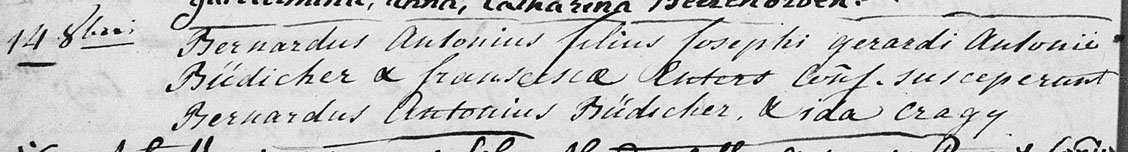 gardermina, anna, Catharina
14 8bris Bernardus Antonius filius Josephi gerardi Antonii
Büdicher & franscisca Enters Conf. susceperunt
Bernardus Antonius Büdscher, & ida Cragy